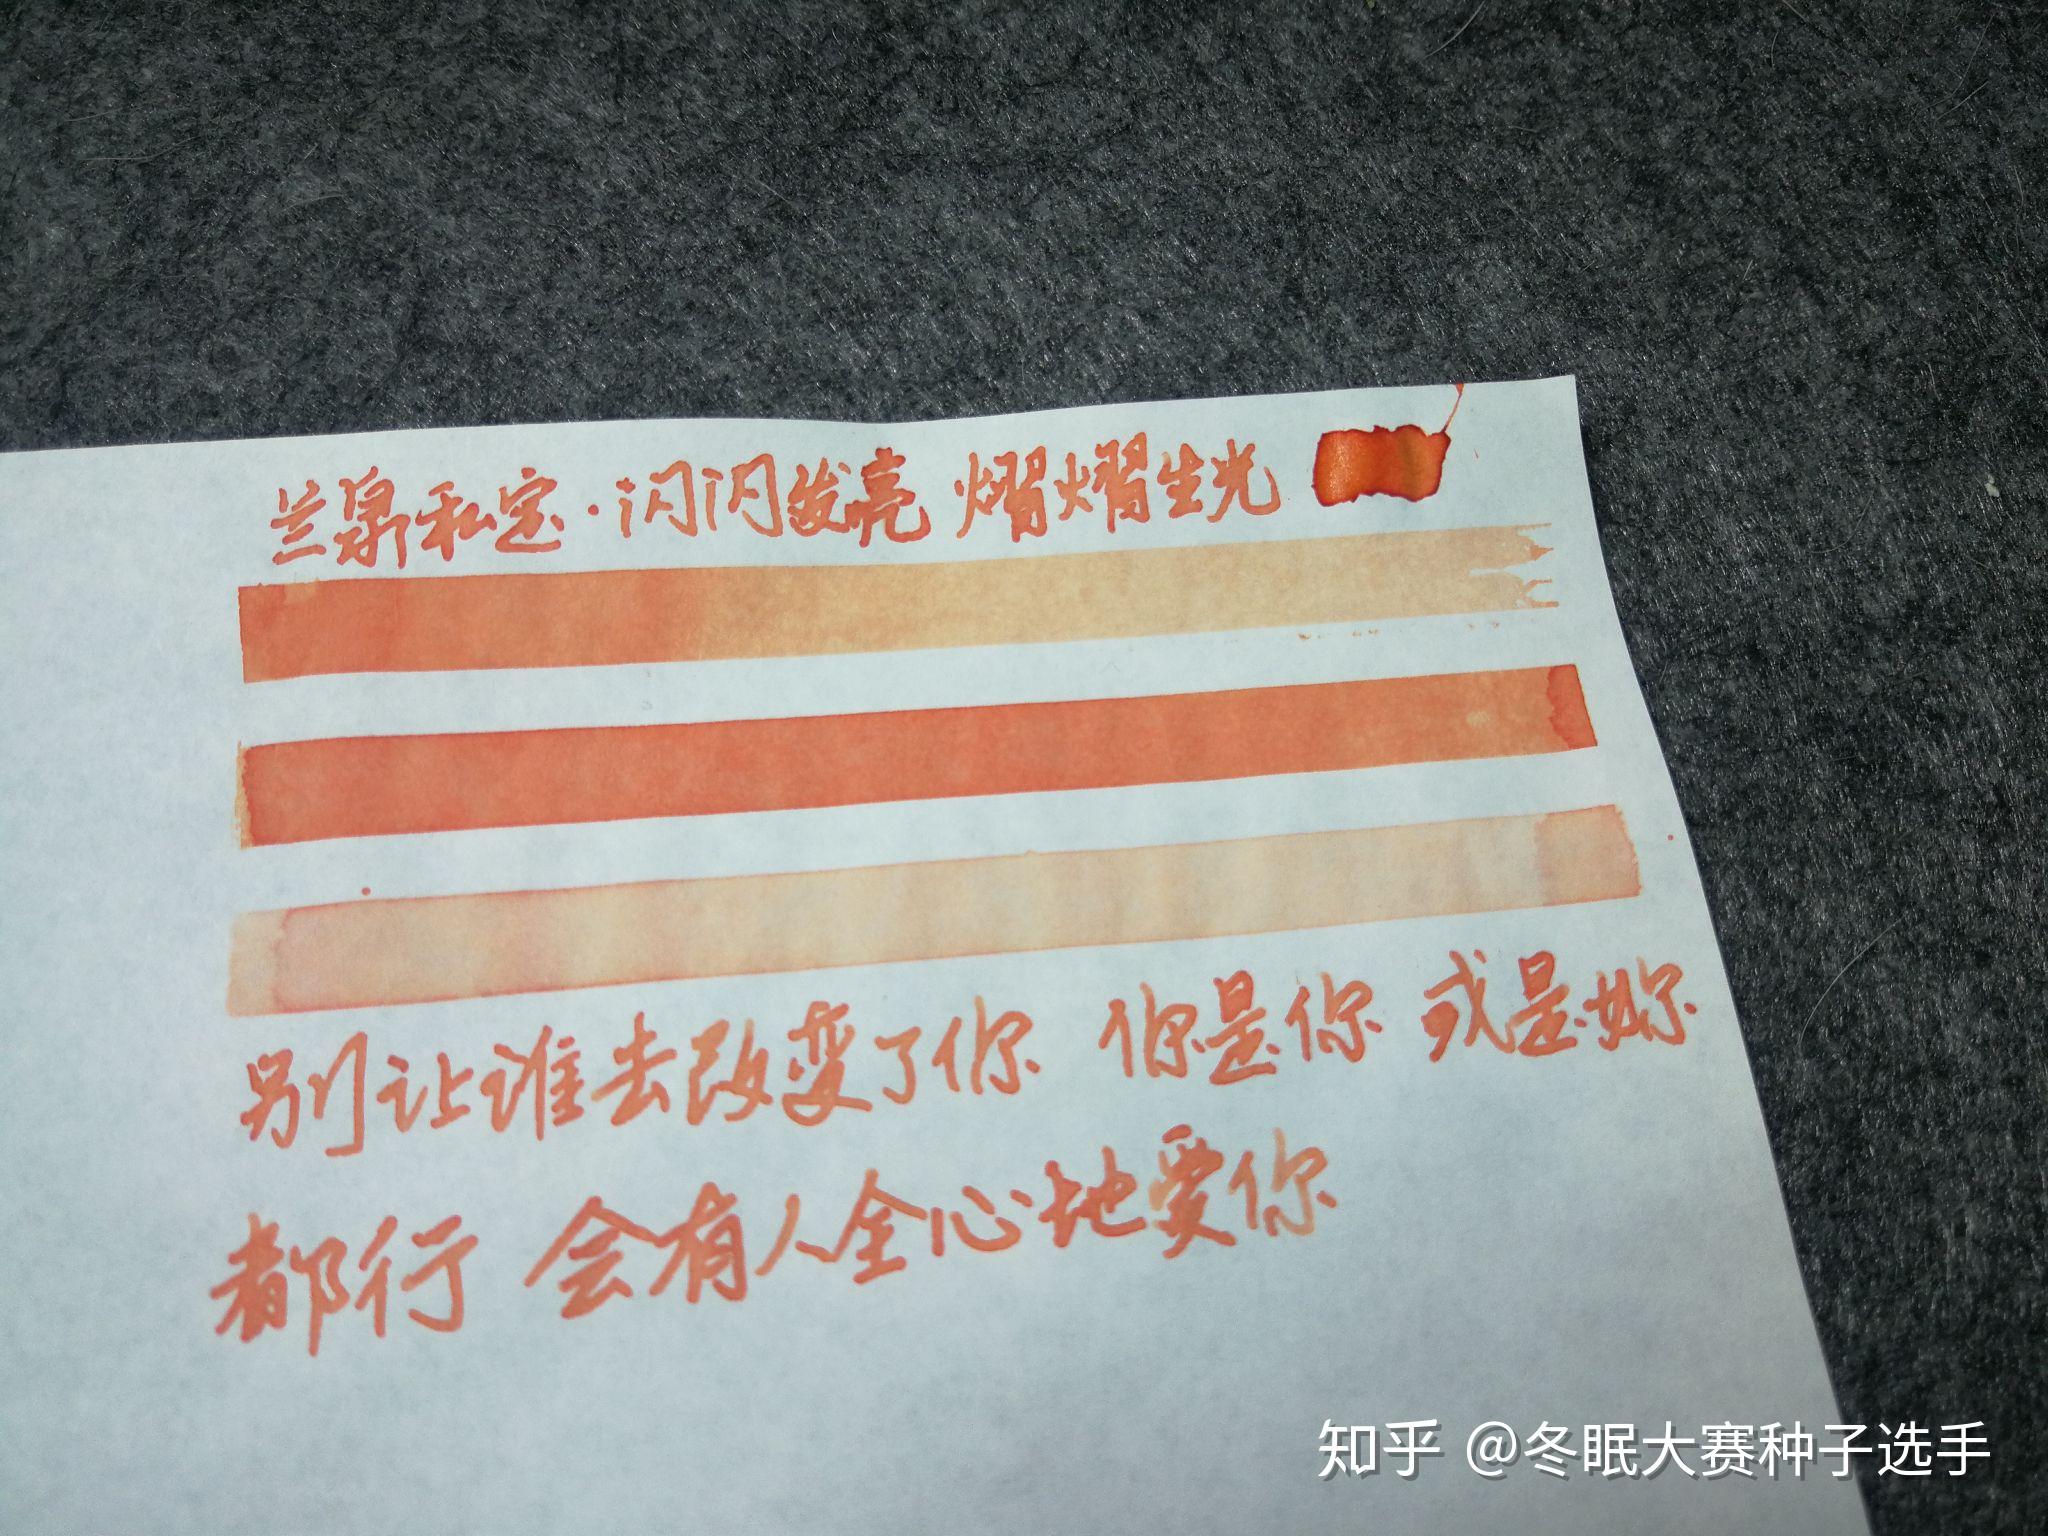 兰泉私定·闪闪发亮 熠熠生光
别让谁去改变了你 你是你 或是妳
都行 会有人全心地爱你
知乎 @冬眠大赛种子选手